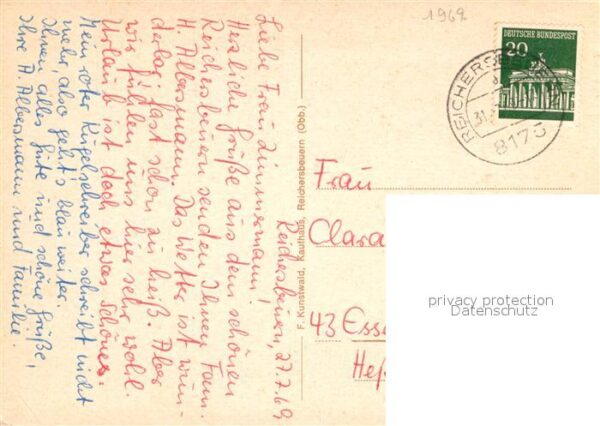 Reichersbeuern, 27.7.69
Liebe Frau Zimmermann!
Herzliche Grüße aus dem schönen
Reichersbeuern senden Ihnen Fam.
H. Albersmann. Das Wetter ist wun-
derbar, fast schon zu heiß. Aber
wir fühlen uns hier sehr wohl.
Urlaub ist doch etwas Schönes.
Mein roter Kugelschreiber schreibt nicht
mehr, also geht's blau weiter.
Ihnen alles Gute und schöne Grüße,
Ihre A. Albersmann und Familie.
F. Kunstwald, Kaufhaus, Reichersbeuern (Obb.)
1969
DEUTSCHE BUNDESPOST
20
31.
8175
Frau
Clara
43 Esse
privacy protection
Datenschutz